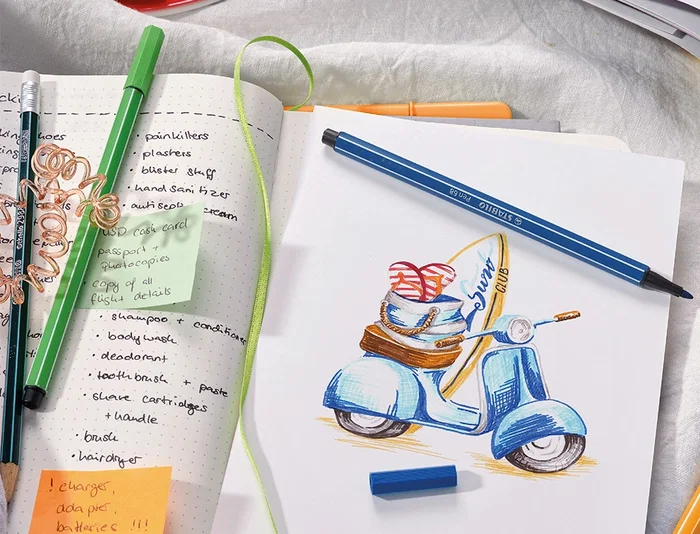 · painkillers
· plasters
· blister stuff
· hand sanitizer
· antiseptic cream
USD cash card
passport +
photocopies
copy of all
flight details
· shampoo + conditioner
· body wash
· deodorant
· toothbrush + paste
· shave cartridges
+ handle
· brush
· hairdryer
! charger,
adapter,
batteries !!!
STABILO Pen 68
Surf
CLUB